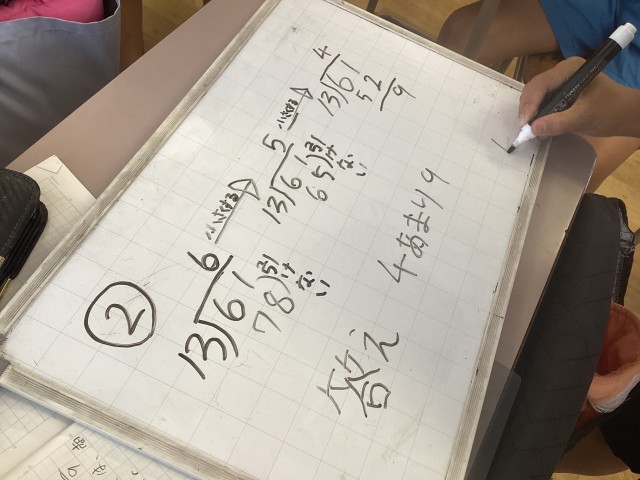 ②
6
13)61
78
引けない
小さくする
5
13)61
65
引けない
小さくする
4
13)61
52
9
答え
4あまり9